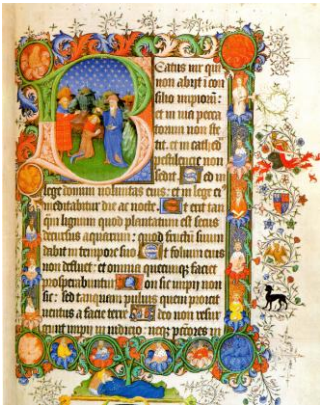 Beatus vir qui
non abijt i con
silio impiorū :
et in uia pecca
torum non ste
tit. et in cathed
pestilencie non
sedit Sed in
lege domini uoluntas eius : et in lege ei
meditabitur die ac nocte. Et erit tan
qm lignum quod plantatum est secus
decursus aquarum : quod fructū suum
dabit in tempore suo Et folium eius
non defluet : et omnia quecumqꝫ faciet
prosperabuntur Non sic impij non
sic : sed tanquam puluis quem proicit
uentus a facie terre Ideo non resur
gunt impij in iudicio : neqꝫ pctōres in